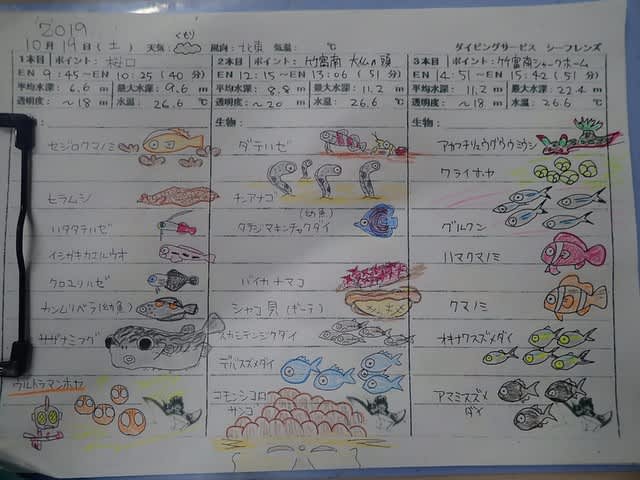 2019
10月19日(土) 天気: くもり 風向: 北東 気温: ℃ ダイビングサービス シーフレンズ
1本目 ポイント: 桜口
EN 9:45～EN 10:25 (40分)
平均水深: 6.6 m 最大水深: 9.6 m
透明度: ～18 m 水温: 26.6 ℃
生物:
セジロクマノミ
ヒラムシ
ハタタテハゼ
イシガキカエルウオ
クロユリハゼ
カンムリベラ(幼魚)
サザナミフグ
ウルトラマンホヤ
2本目 ポイント: 竹富南 大仏の頭
EN 12:15～EN 13:06 (51分)
平均水深: 8.8 m 最大水深: 11.2 m
透明度: ～20 m 水温: 26.6 ℃
生物:
ダテハゼ
チンアナゴ
(幼魚)
タテジマキンチャクダイ
バイカナマコ
シャコ貝(ポーテ)
スカシテンジクダイ
デバスズメダイ
コモンシコロ
サンゴ
3本目 ポイント: 竹富南シャークホーム
EN 14:51～EN 15:42 (51分)
平均水深: 11.2 m 最大水深: 22.4 m
透明度: ～18 m 水温: 26.6 ℃
生物:
アカフチリュウグウウミウシ
ワライボヤ
グルクン
ハマクマノミ
クマノミ
オキナワスズメダイ
アマミスズメ
ダイ